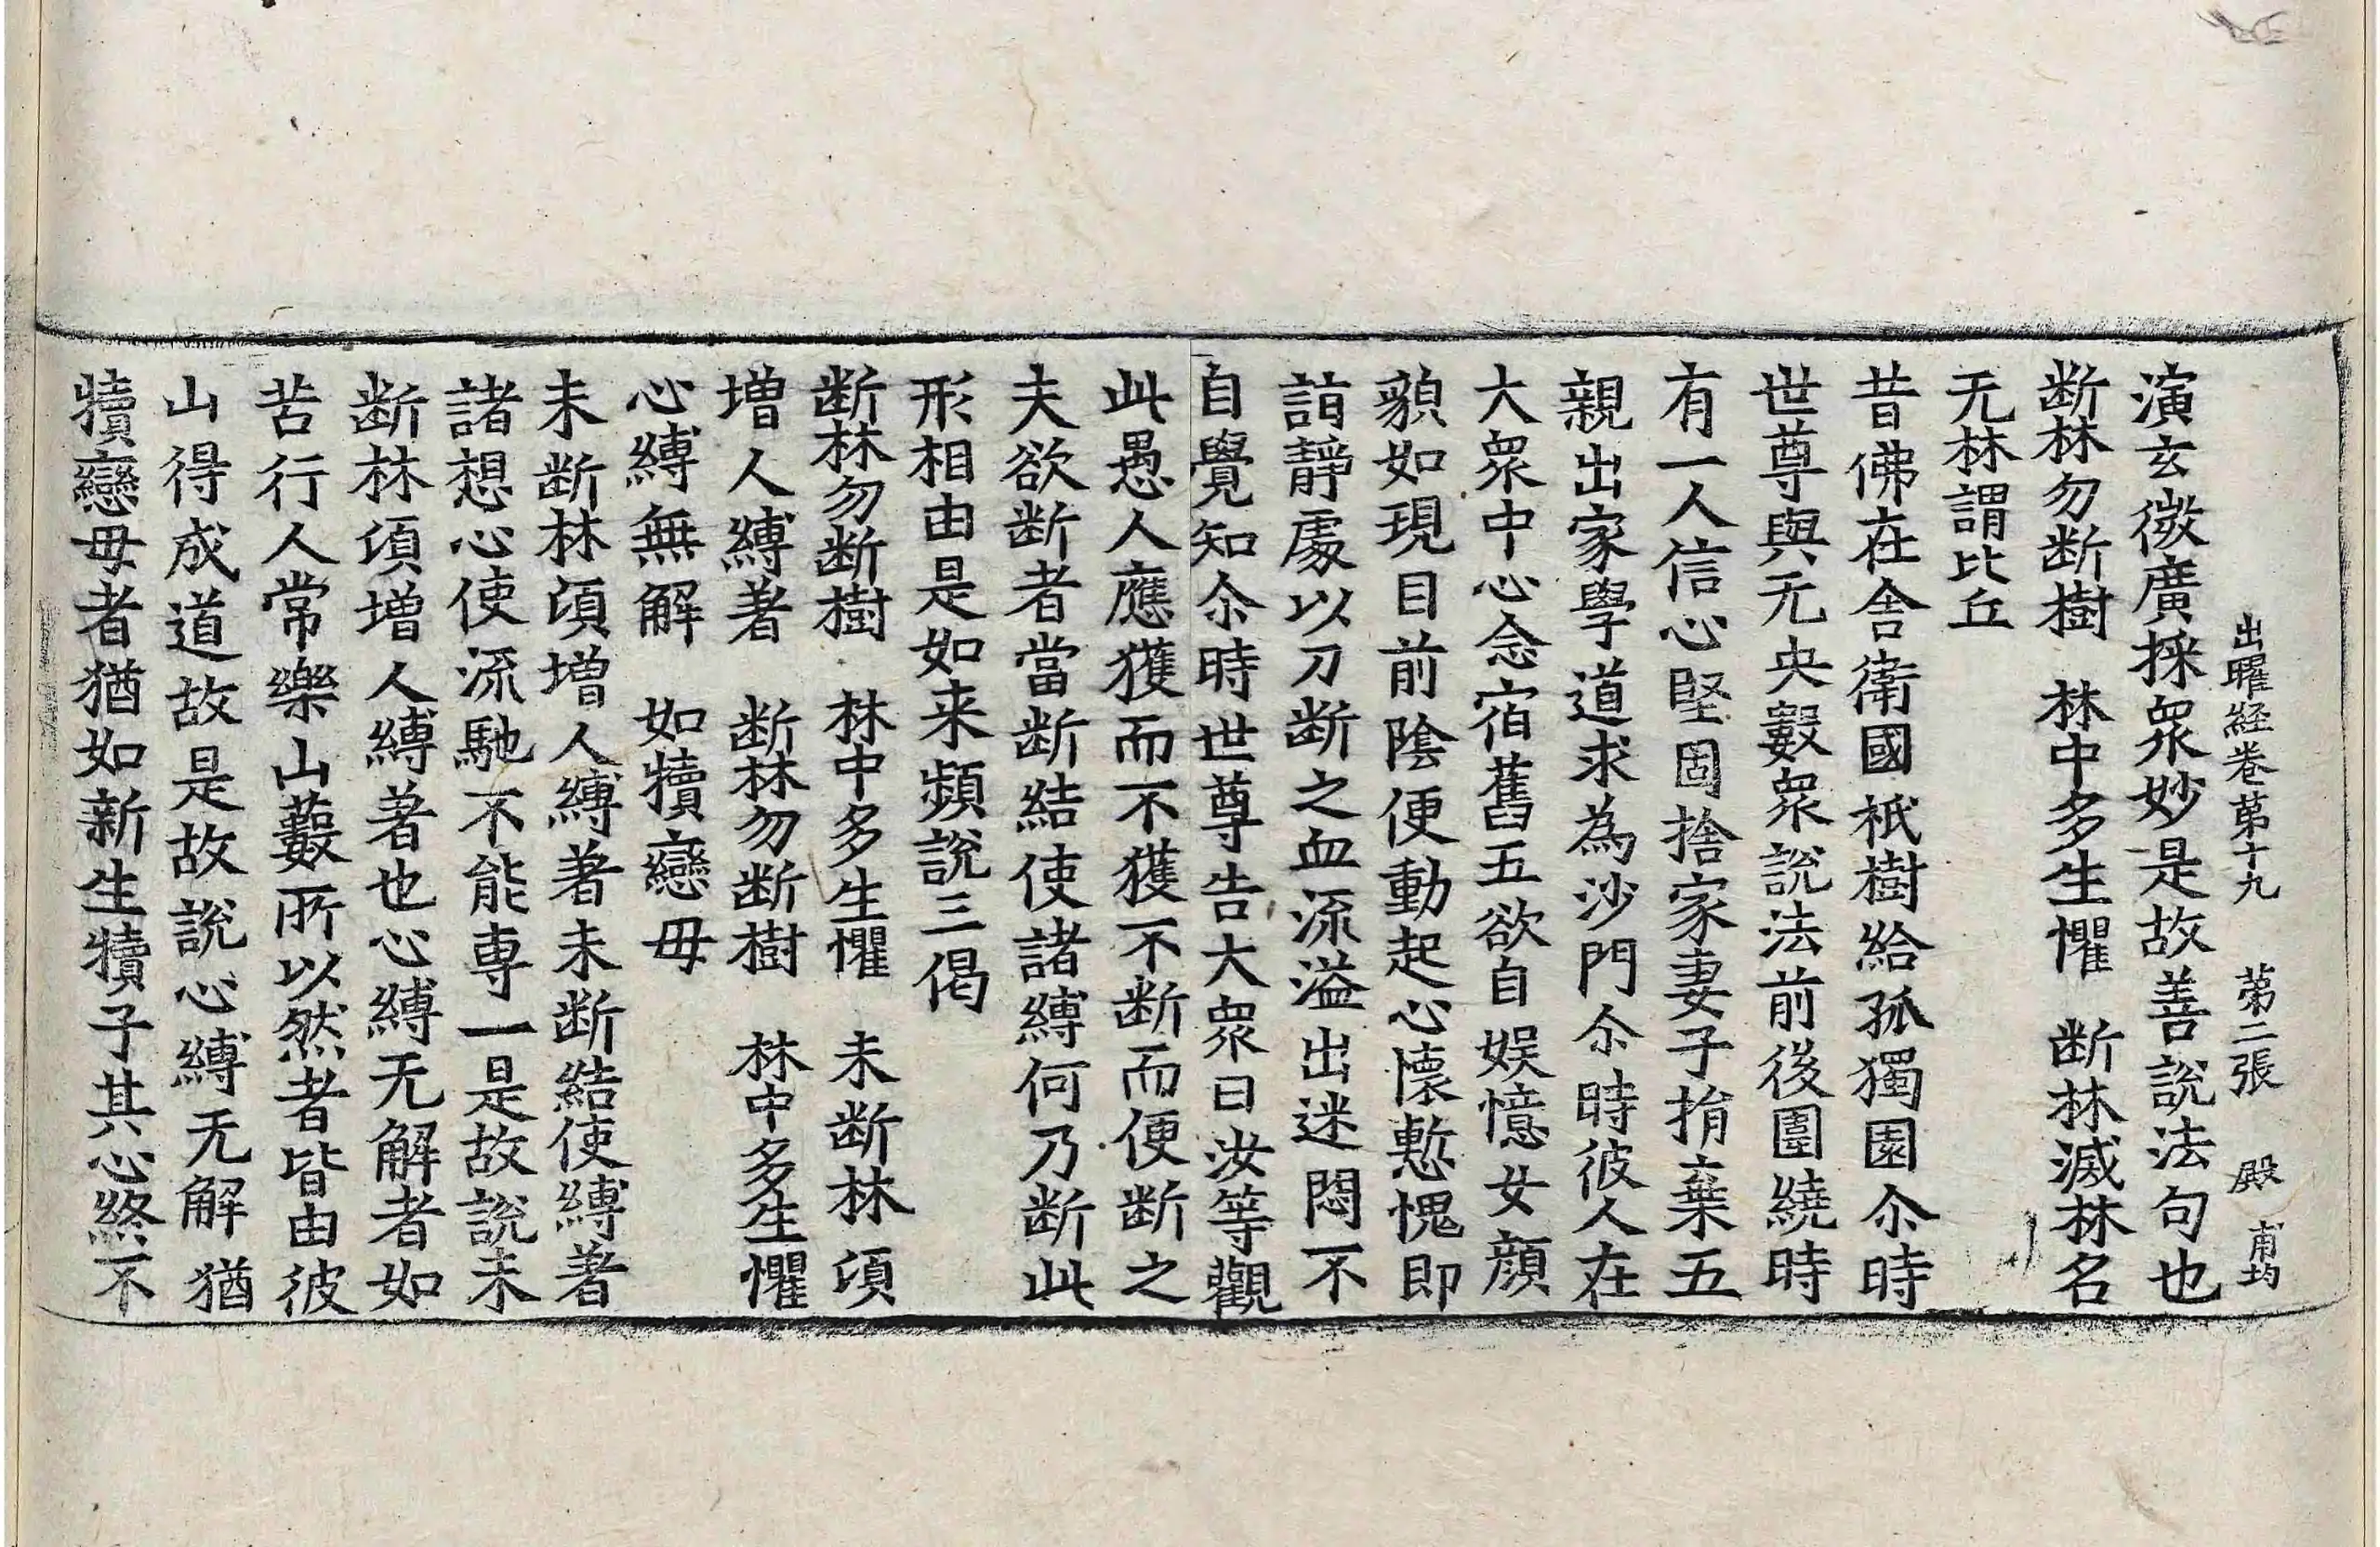 出曜経卷苐十九　苐二張　殿　甫均
演玄微廣採衆妙是故善説法句也
断林勿断樹　林中多生懼　断林滅林名
无林謂比丘
昔佛在舎衛國祇樹給孤獨園尒時
世尊與无央數衆説法前後圍繞時
有一人信心堅固捨家妻子捐棄五
親出家學道求為沙門尒時彼人在
大衆中心念宿舊五欲自娱憶女顔
貌如現目前陰便動起心懷慙愧即
詣靜處以刀断之血流溢出迷悶不
自覺知尒時世尊告大衆曰汝等觀
此愚人應獲而不獲不断而便断之
夫欲断者當断結使諸縛何乃断此
形相由是如来頻説三偈
断林勿断樹　林中多生懼　未断林湏
増人縛著　断林勿断樹　林中多生懼
心縛無解　如犢戀毋
未断林湏増人縛著未断結使縛著
諸想心使流馳不能専一是故説未
断林湏増人縛著也心縛无解者如
苦行人常樂山藪所以然者皆由彼
山得成道故是故説心縛无解猶
犢戀毋者猶如新生犢子其心終不